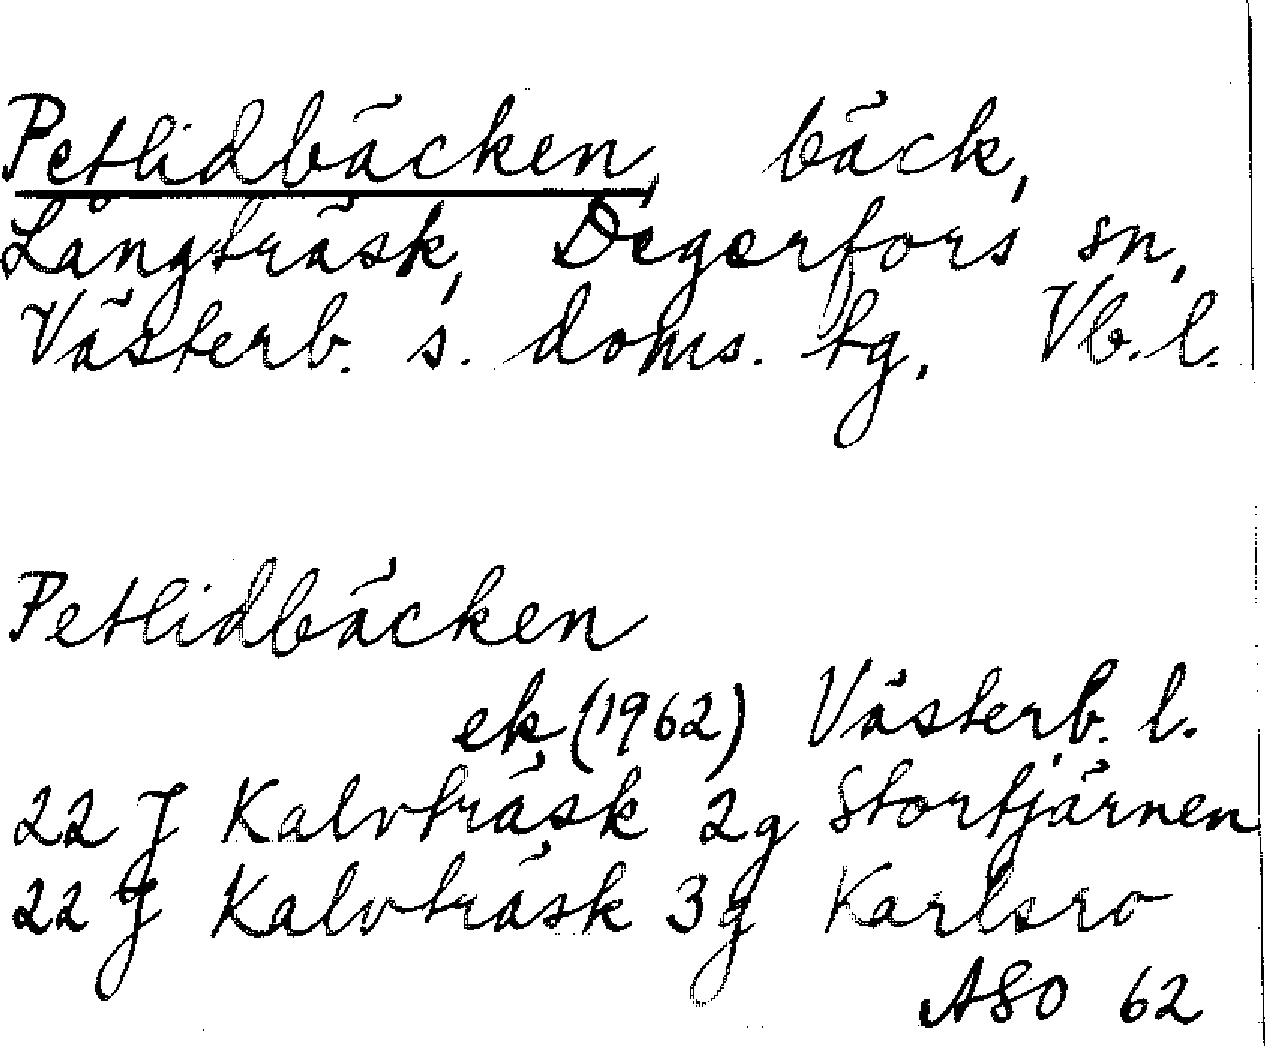 Petlidbäcken, bäck,
Långträsk, Degerfors sn,
Västerb. s. doms. tg. Vb. l.
Petlidbäcken
ek (1962) Västerb. l.
22 J Kalvträsk 2g Stortjärnen
22 J Kalvträsk 3g Karlsro
ASO 62